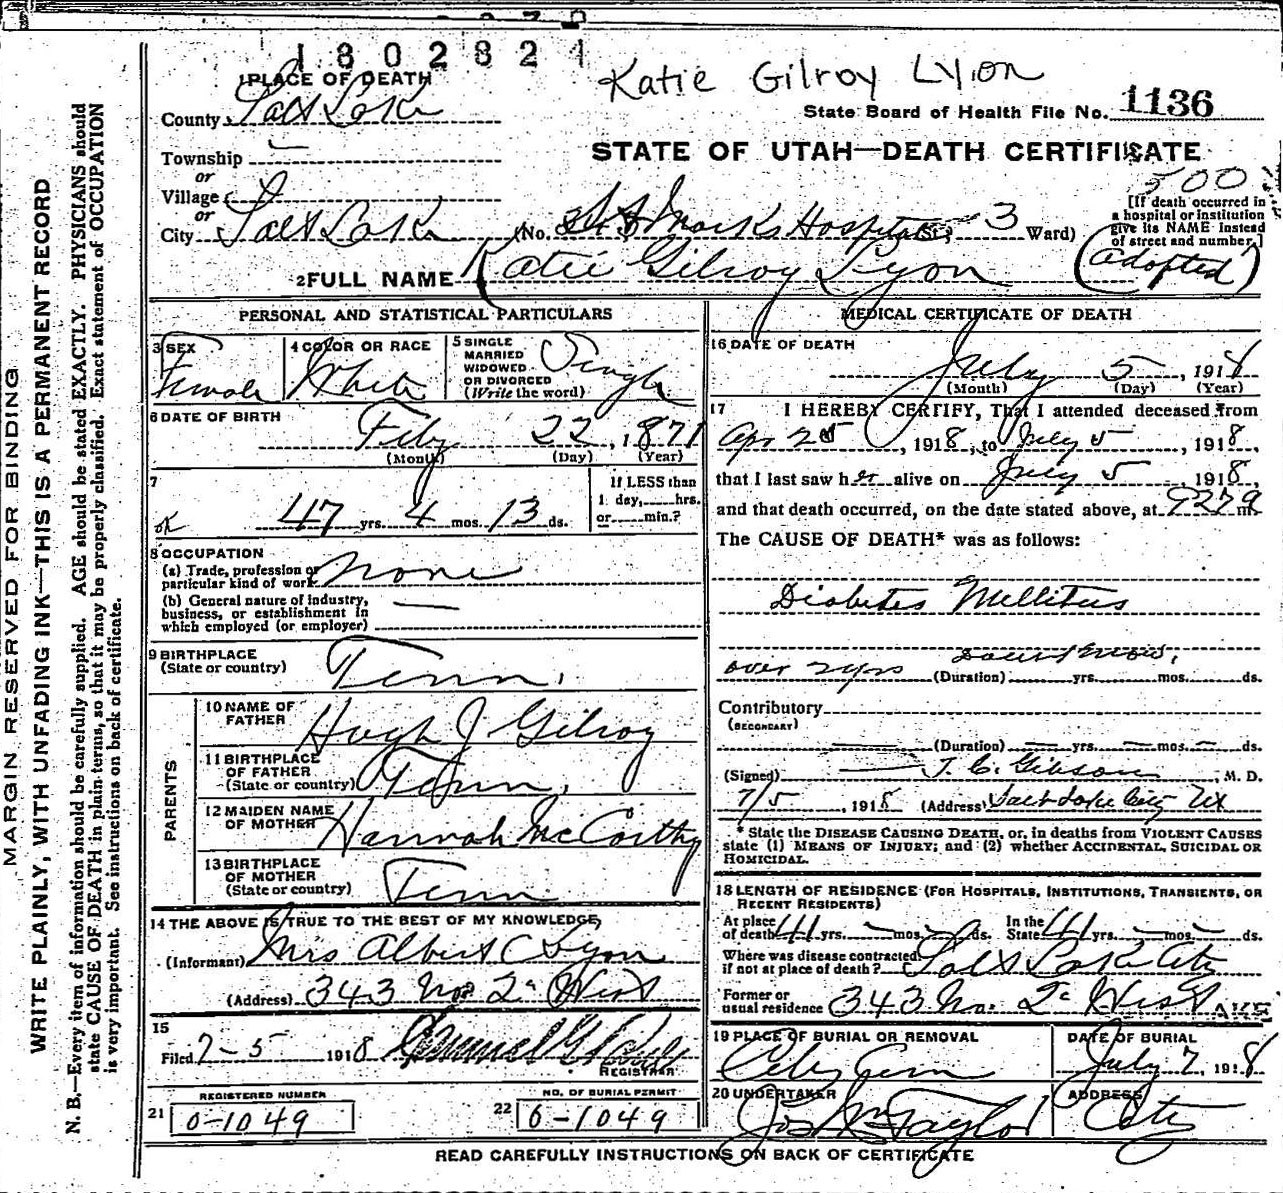 1802824
Katie Gilroy Lyon
State Board of Health File No. 1136
STATE OF UTAH—DEATH CERTIFICATE
500
1 PLACE OF DEATH
County Salt Lake
Township —
or
Village
or
City Salt Lake (No. St Marks Hospital St; 3 Ward)
[If death occurred in a hospital or institution give its NAME instead of street and number.]
2 FULL NAME Katie Gilroy Lyon (Adopted)
PERSONAL AND STATISTICAL PARTICULARS
3 SEX Female
4 COLOR OR RACE White
5 SINGLE MARRIED WIDOWED OR DIVORCED (Write the word) Single
6 DATE OF BIRTH Feby 22, 1871
(Month) (Day) (Year)
7 ok 47 yrs. 4 mos. 13 ds.
If LESS than 1 day, hrs. or min.?
8 OCCUPATION
(a) Trade, profession or particular kind of work None
(b) General nature of industry, business, or establishment in which employed (or employer) —
9 BIRTHPLACE (State or country) Tenn.
PARENTS
10 NAME OF FATHER Hugh J Gilroy
11 BIRTHPLACE OF FATHER (State or country) Tenn.
12 MAIDEN NAME OF MOTHER Hannah McCarthy
13 BIRTHPLACE OF MOTHER (State or country) Tenn
14 THE ABOVE IS TRUE TO THE BEST OF MY KNOWLEDGE,
(Informant) Mrs Albert C Lyon
(Address) 343 No 2d West
15 Filed 7-5 1918
REGISTRAR
21 REGISTERED NUMBER 0-1049
22 NO. OF BURIAL PERMIT 0-1049
MEDICAL CERTIFICATE OF DEATH
16 DATE OF DEATH
July 5, 1918
(Month) (Day) (Year)
17 I HEREBY CERTIFY, That I attended deceased from
Apr 25, 1918, to July 5, 1918,
that I last saw her alive on July 5 1918,
and that death occurred, on the date stated above, at m.
The CAUSE OF DEATH* was as follows:
Diabetes Mellitus
over 2 yrs (Duration) yrs. mos. ds.
Contributory
(SECONDARY)
(Duration) — yrs. — mos. — ds.
(Signed) J. C. Gibson, M. D.
7/5, 1918 (Address) Salt Lake City
* State the DISEASE CAUSING DEATH, or, in deaths from VIOLENT CAUSES state (1) MEANS OF INJURY; and (2) whether ACCIDENTAL, SUICIDAL OR HOMICIDAL.
18 LENGTH OF RESIDENCE (FOR HOSPITALS, INSTITUTIONS, TRANSIENTS, OR RECENT RESIDENTS)
At place of death 41 yrs. — mos. — ds. In the State 41 yrs. — mos. — ds.
Where was disease contracted if not at place of death? Salt Lake City
Former or usual residence 343 No. 2d West
19 PLACE OF BURIAL OR REMOVAL City Cem
DATE OF BURIAL July 7, 1918
20 UNDERTAKER Jos Wm Taylor
ADDRESS City
READ CAREFULLY INSTRUCTIONS ON BACK OF CERTIFICATE
MARGIN RESERVED FOR BINDING
WRITE PLAINLY, WITH UNFADING INK—THIS IS A PERMANENT RECORD
N. B.—Every item of information should be carefully supplied. AGE should be stated EXACTLY. PHYSICIANS should
state CAUSE OF DEATH in plain terms, so that it may be properly classified. Exact statement of OCCUPATION
is very important. See instructions on back of certificate.